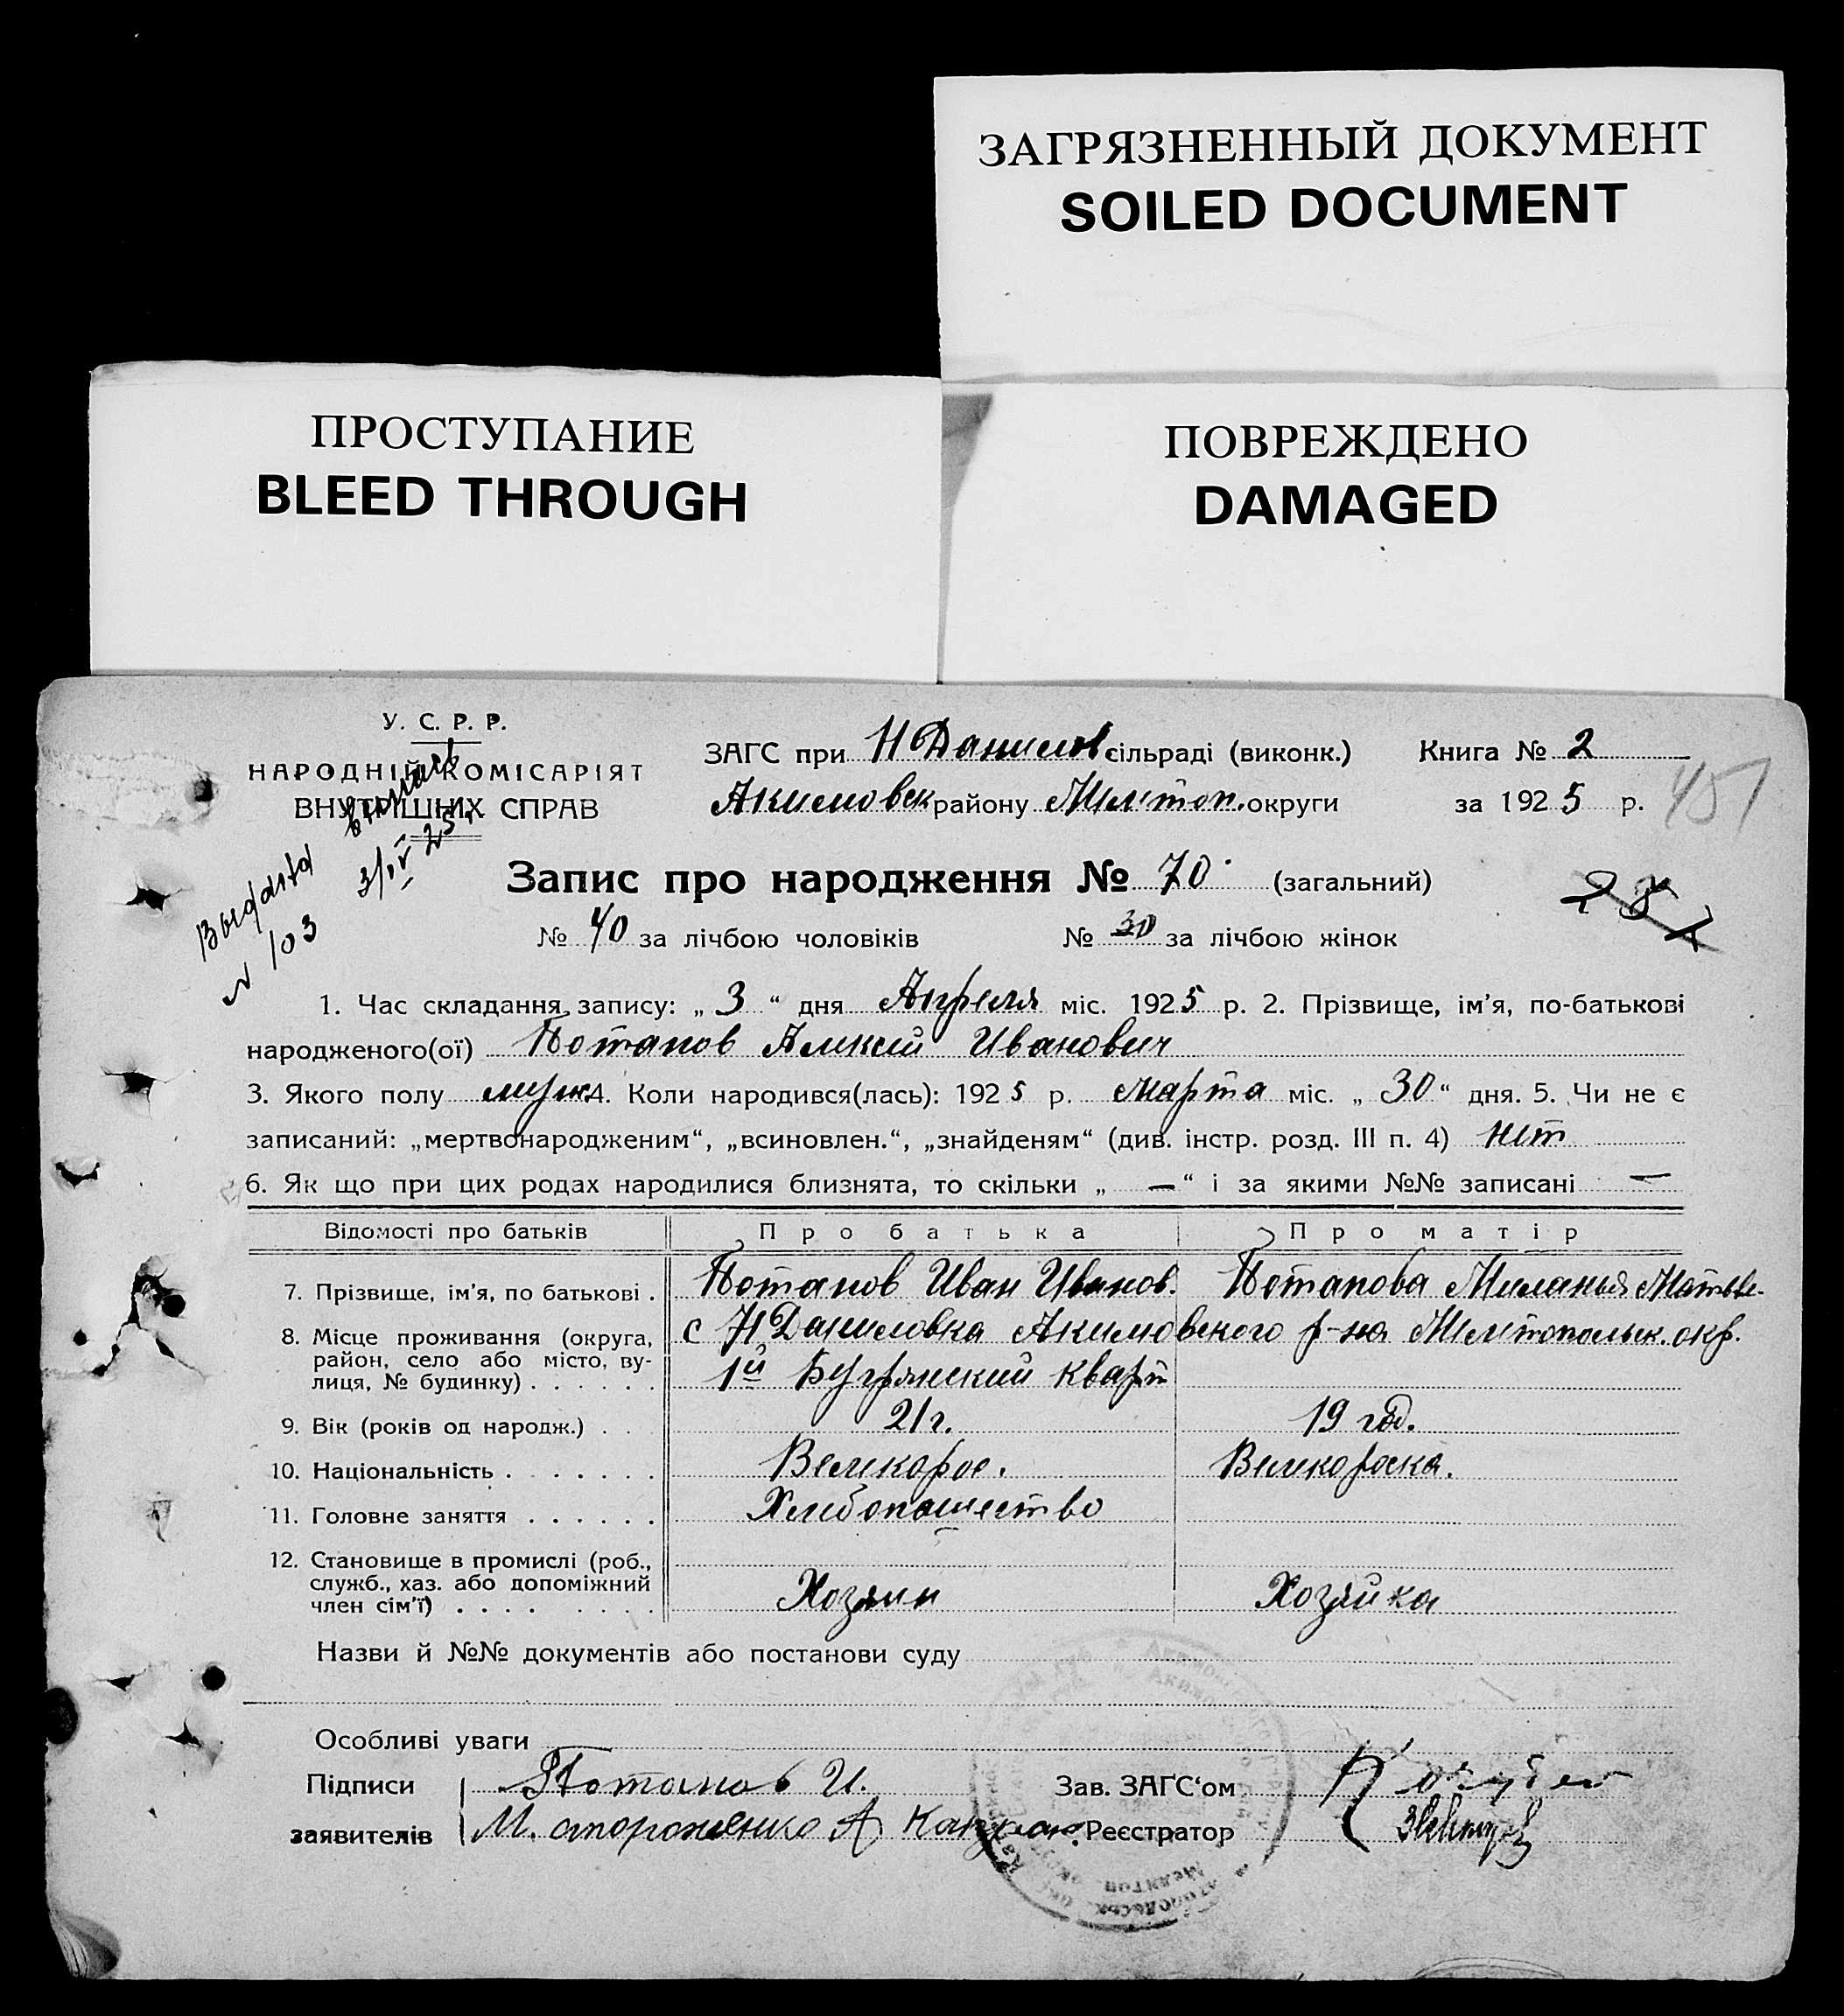 ЗАГРЯЗНЕННЫЙ ДОКУМЕНТ
SOILED DOCUMENT
ПРОСТУПАНИЕ
BLEED THROUGH
ПОВРЕЖДЕНО
DAMAGED
У. С. Р. Р.
НАРОДНІЙ КОМІСАРІЯТ
ВНУТРІШНІХ СПРАВ
ЗАГС при Н Данилов сільраді (виконк.) Книга № 2
Акимовск району Мелітоп. округи за 1925 р.
457
Выдана выпись
№ 103 3/IV 25.
Запис про народження № 70. (загальний)
№ 40 за лічбою чоловіків № 30 за лічбою жінок
287
1. Час складання запису: „ 3 “ дня Апреля міс. 1925 р. 2. Прізвище, ім’я, по-батькові
народженого(ої) Потапов Алексей Иванович
3. Якого полу муж. 4. Коли народився(лась): 1925 р. Марта міс. „ 30 “ дня. 5. Чи не є
записаний: „мертвонародженим“, „всиновлен.“, „знайденям“ (див. інстр. розд. III п. 4) нет
6. Як що при цих родах народилися близнята, то скільки „ — “ і за якими №№ записані —
Відомості про батьків Про батька Про матір
7. Прізвище, ім’я, по батькові . Потапов Иван Иванов. Потапова Миланья Матве.
8. Місце проживання (округа, район, село або місто, вулиця, № будинку) с Н Даниловка Акимовского р-на Мелитопольск. окр.
1й кварт
9. Вік (років од народж.) . . 21 г. 19 год.
10. Національність . . . . . . . Великорос. Великороска.
11. Головне заняття . . . . . . Хлебопашество
12. Становище в промислі (роб., служб., хаз. або допоміжний член сім’ї) . . . . Хозяин Хозяйка
Назви й №№ документів або постанови суду
Особливі уваги
Підписи Потапов И. Зав. ЗАГС‘ом
заявителів М. стороженко А Реєстратор